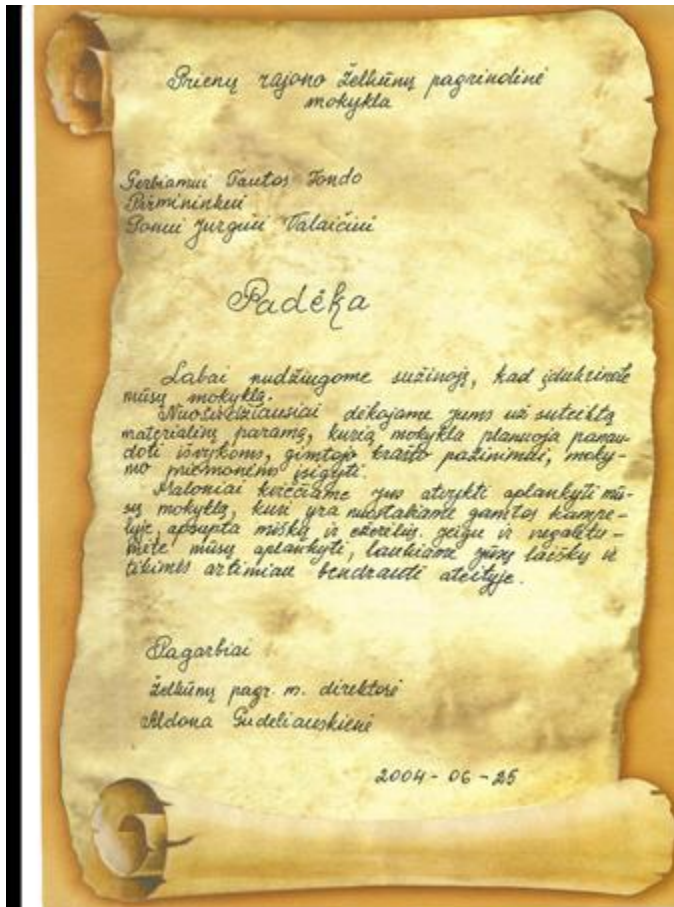 Prienų rajono Želkūnų pagrindinė
mokykla
Gerbiamui Tautos Fondo
Pirmininkui
Ponui Jurgiui Valaičiui
Padėka
Labai nudžiugome sužinoję, kad įdukrinote
mūsų mokyklą.
Nuoširdžiausiai dėkojame jums už suteiktą
materialinę paramą, kurią mokykla planuoja panau-
doti išvykoms, gimtojo krašto pažinimui, moky-
mo priemonėms įsigyti.
Maloniai kviečiame jus atvykti aplankyti mū-
sų mokyklą, kuri yra nuostabiame gamtos kampe-
lyje, apsupta miškų ir ežerėlių. Jeigu ir negalėtu-
mėte mūsų aplankyti, laukiame jūsų laiškų ir
tikimės artimiau bendrauti ateityje.
Pagarbiai
Želkūnų pagr. m. direktorė
Aldona Gudeliauskienė
2004-06-25